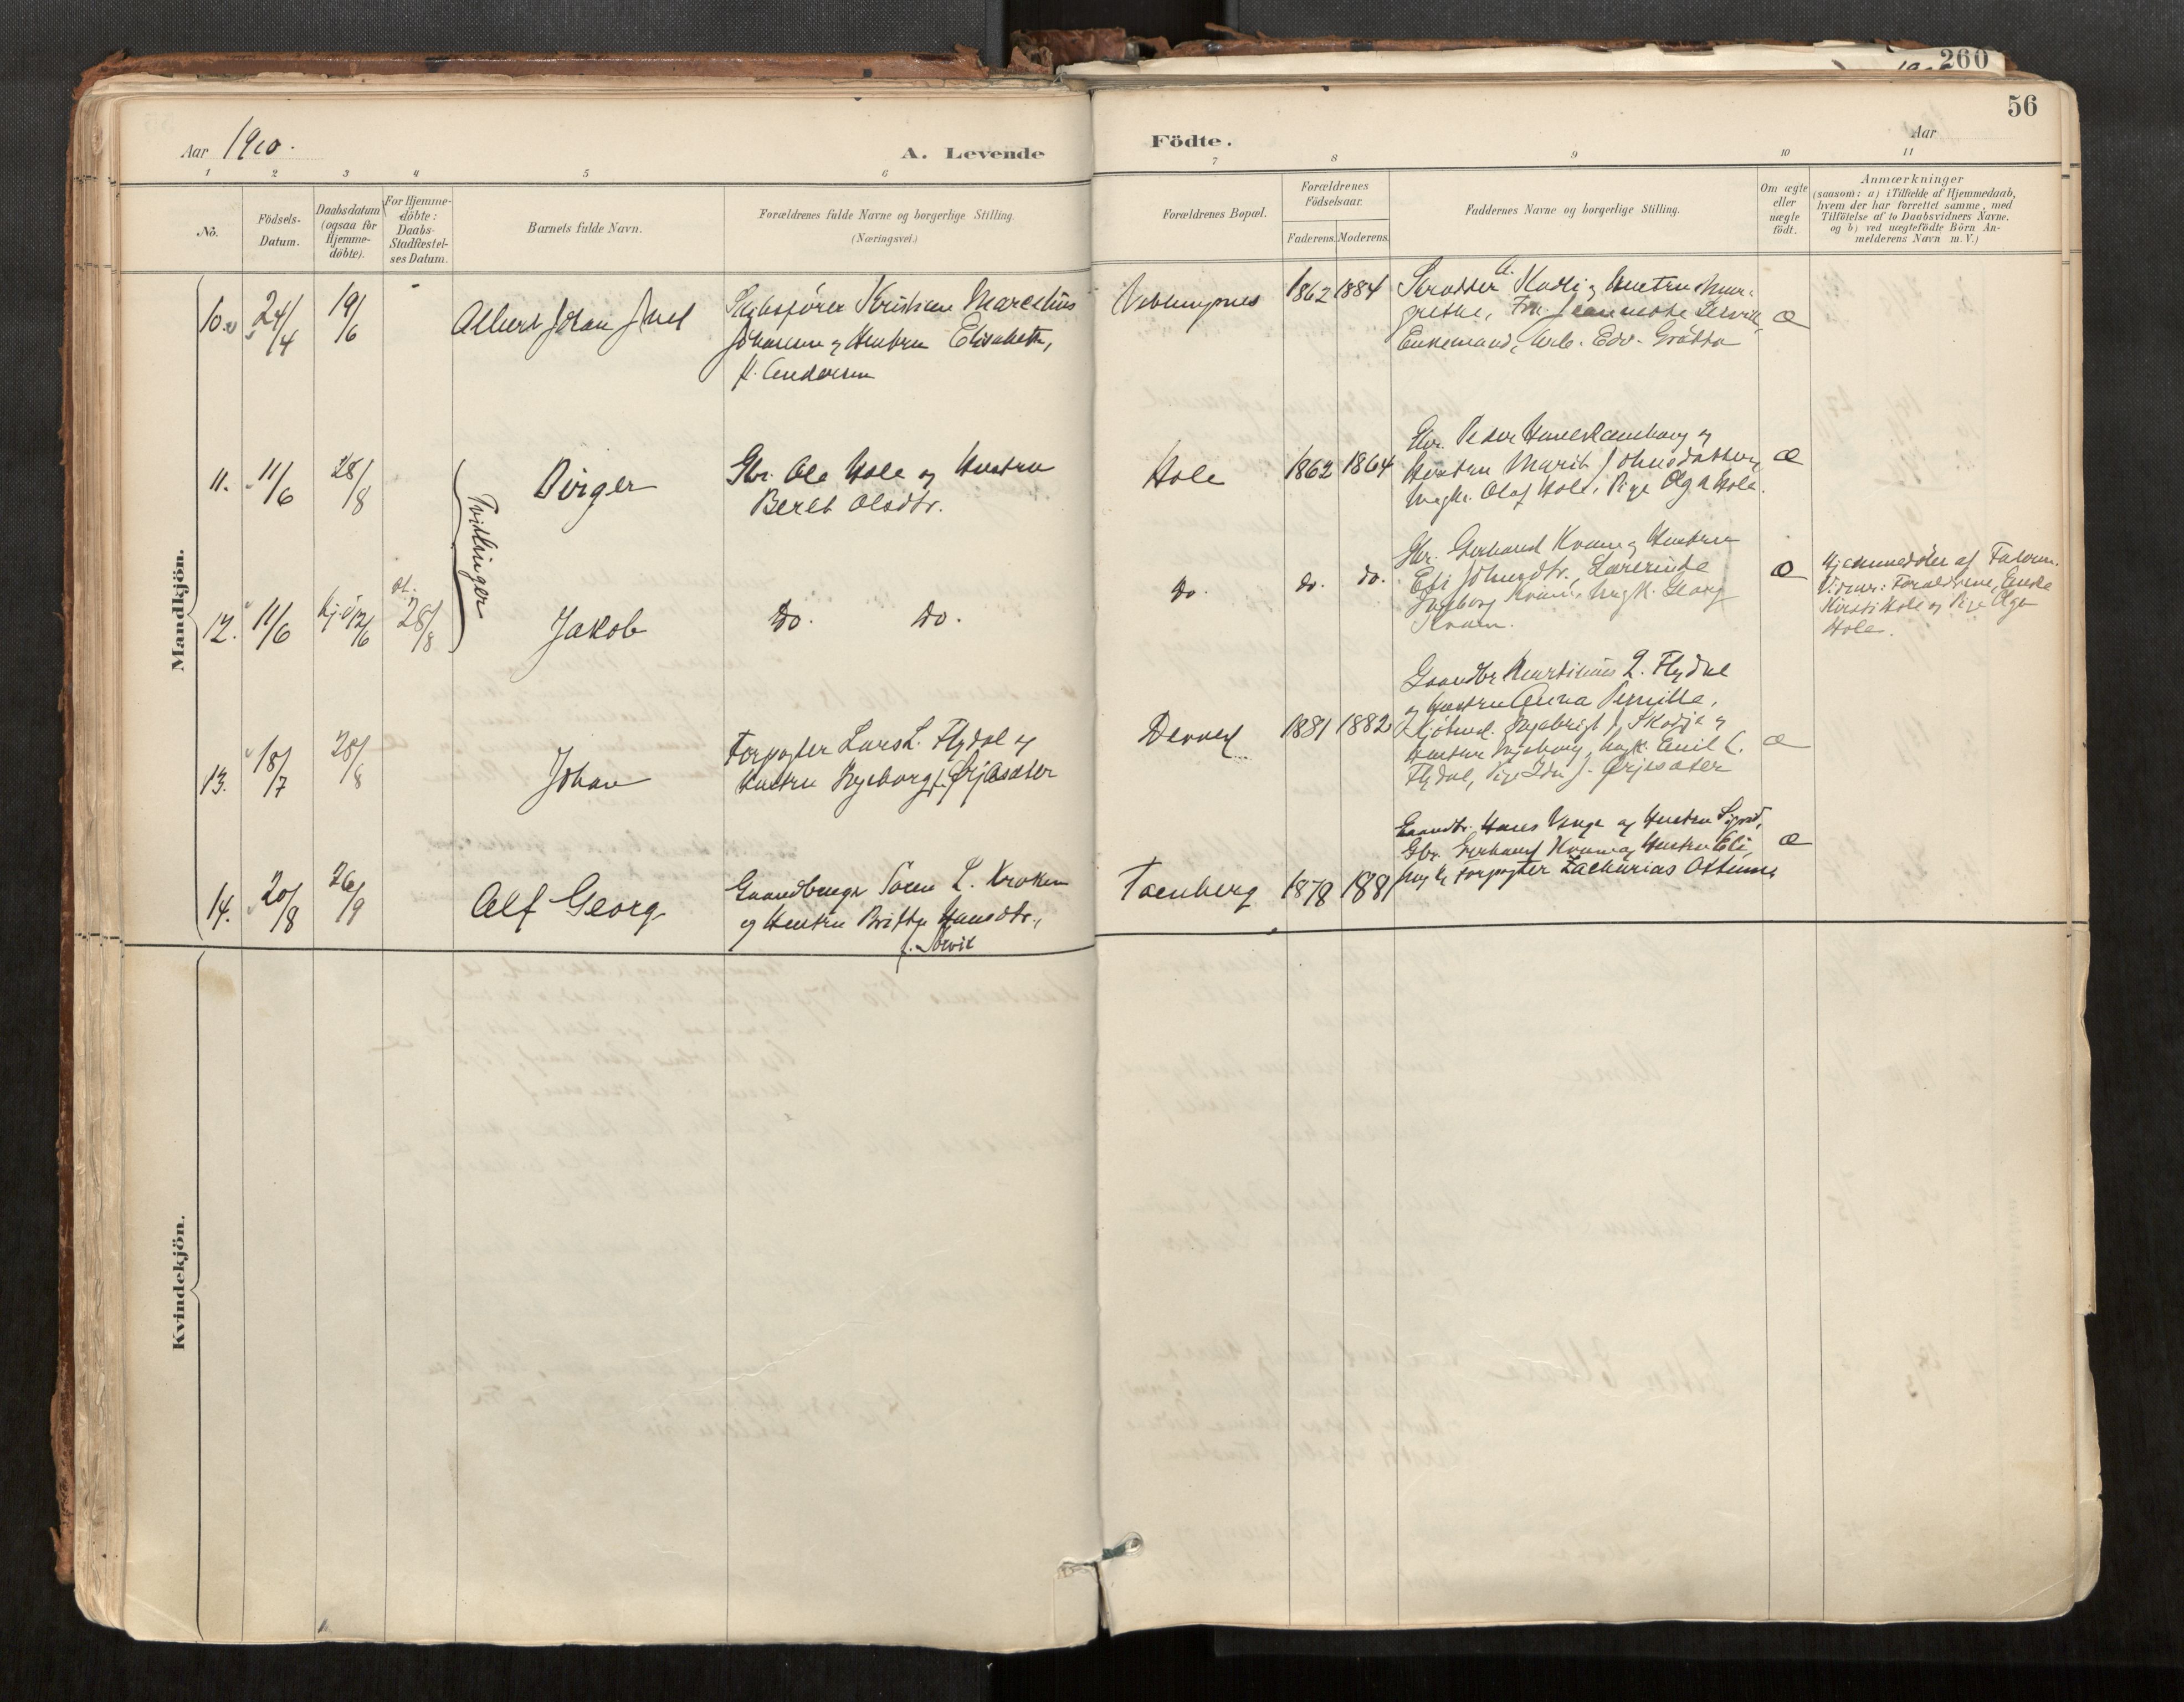 260
56
Aar 1910.
A. Levende
Födte.
Aar
1 2 3 4 5 6 7 8 9 10 11
No.
Födsels-
Datum.
Daabsdatum
(ogsaa for
Hjemme-
döbte).
For Hjemme-
döbte:
Daabs-
Stadfæstel-
ses Datum.
Barnets fulde Navn.
Forældrenes fulde Navne og borgerlige Stilling.
(Næringsvei.)
Forældrenes Bopæl.
Forældrenes
Födselsaar.
Faderens. Moderens.
Faddernes Navne og borgerlige Stilling.
Om ægte
eller
uægte
födt.
Anmærkninger
(saasom: a) i Tilfælde af Hjemmedaab,
hvem der har forrettet samme, med
Tilföielse af to Daabsvidners Navne.
og b) ved uægtefödte Börn An-
melderens Navn m. V.)
Mandkjön.
10. 24/4 19/6
Albert Johan
Kristian Marcelius
Johansen og Hustru Elisabeth,
f. Andersen
Veblungsnes
1862 1884
og Hustru Mar-
grethe,
Enkemand, Edv. Grötta
æ
11. 11/6 28/8
Tvillinger
Birger
Gbr. Ole Hole og Hustru
Beret Olsdtr.
Hole
1862 1864
Gbr. Peder
Hustru Marit Johnsdatter,
Ungk. Olaf Hole, Pige Olga Hole.
æ
12. 11/6 hjd 12/6 st. 28/8
Jakob
Do. Do.
Do. do. do.
Gbr. Gerhard Kvam og Hustru
Eli Johnsdtr., Lærerinde
Ingeborg Kvam, Ungk. Georg
Kvam.
æ
Hjemmedöbt af Faderen.
Vidner: Forældrene, Enke
Kirsti Hole og Pige Olga
Hole.
13. 18/7 28/8
Johan
Forpagter Lars L. Flydal og
Hustru Ingeborg f. Örjasæter
Devold
1881 1882
Gaardbr. Martinus L. Flydal
og Hustru Anna Pernille,
Ingebrigt J. Skodje og
Hustru Ingeborg, Ungk. Emil L.
Flydal, Pige Ida J. Örjesæter
æ
14. 20/8 26/9
Alf Georg
Gaardbruger Sören L. Kroken
og Hustru Britha Hansdtr.,
f. Sörvik
Tornberg
1878 1881
Gaardbr. Hans Unge og Hustru Sigrid,
Gbr. Gerhard Kvam og Hustru Eli,
Ungk. Forpagter Zacharias
æ
Kvindekjön.